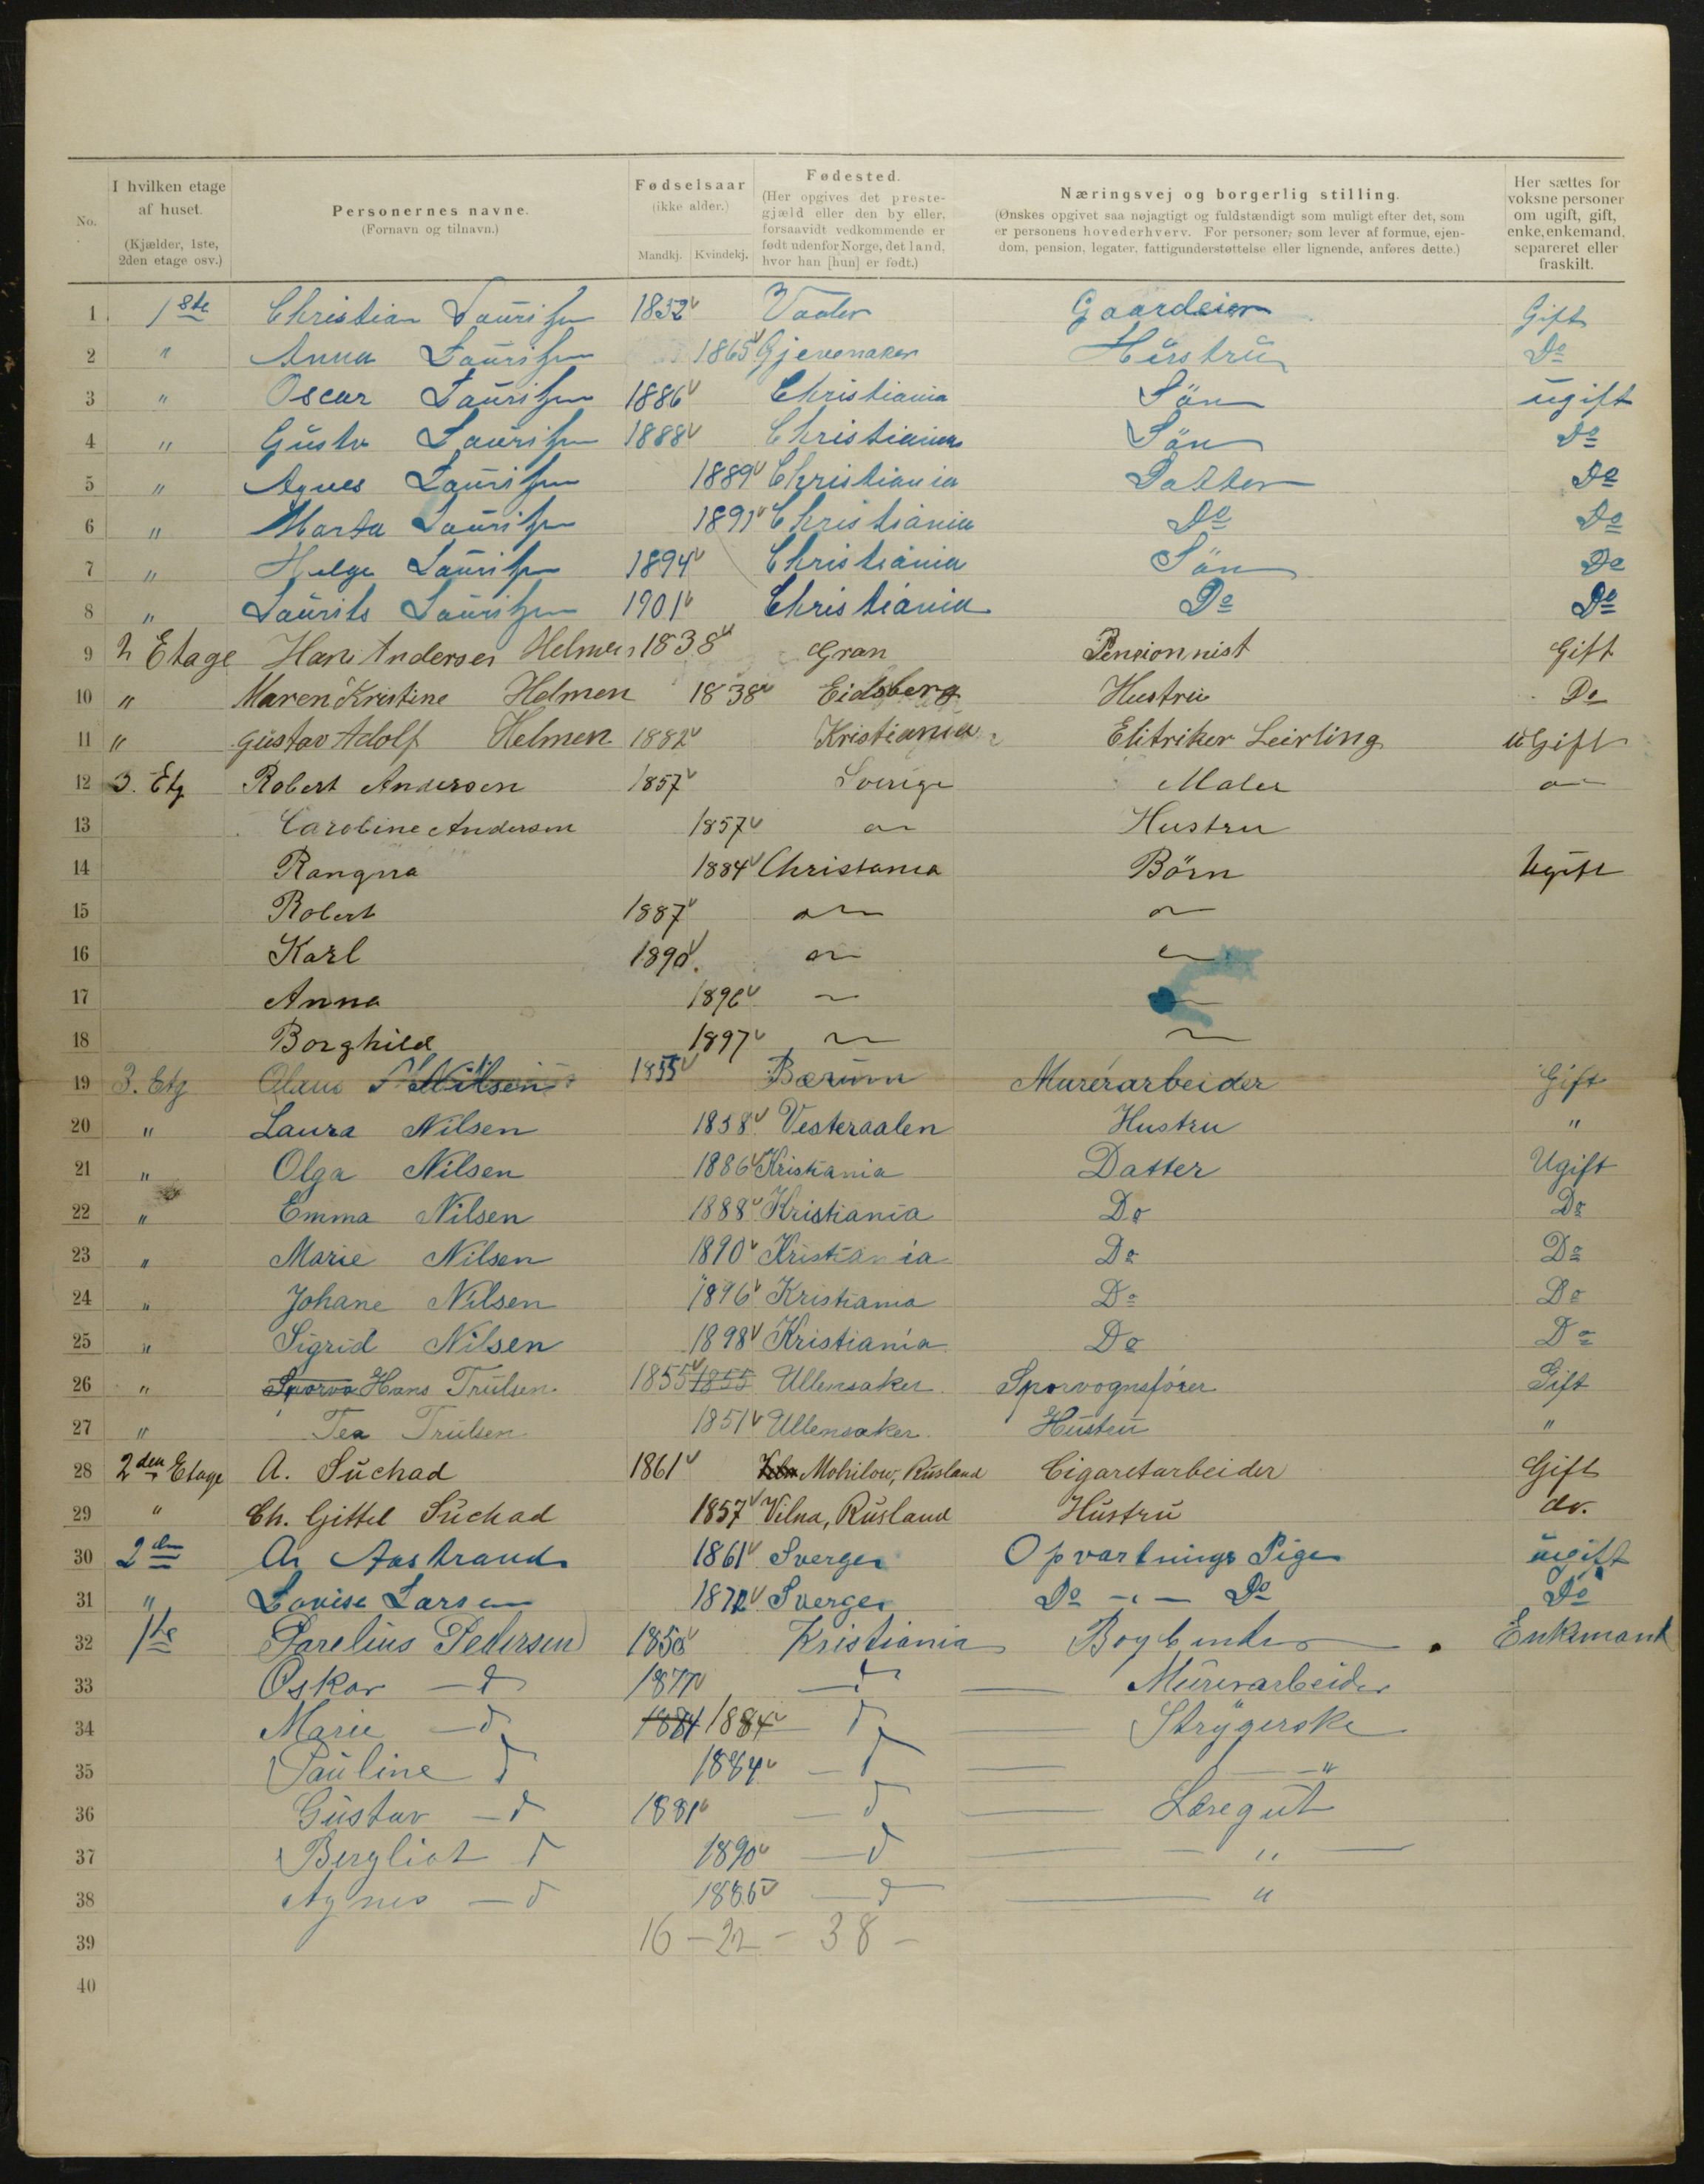 No.
I hvilken etage af huset. (Kjælder, 1ste, 2den etage osv.)
Personernes navne. (Fornavn og tilnavn.)
Fødselsaar (ikke alder.) Mandkj. Kvindekj.
Fødested. (Her opgives det prestegjæld eller den by eller, forsaavidt vedkommende er født udenfor Norge, det land, hvor han [hun] er født.)
Næringsvej og borgerlig stilling. (Ønskes opgivet saa nøjagtigt og fuldstændigt som muligt efter det, som er personens hovederhverv. For personer, som lever af formue, ejendom, pension, legater, fattigunderstøttelse eller lignende, anføres dette.)
Her sættes for voksne personer om ugift, gift, enke, enkemand, separeret eller fraskilt.
1 1ste Christian Lauritzen 1852 Vaaler Gaardeier Gift
2 " Anna Lauritzen 1865 Gjevenaker Hustru Do
3 " Oscar Lauritzen 1886 Christiania Sön ugift
4 " Gustv Lauritzen 1888 Christiania Sön Do
5 " Agnes Lauritzen 1889 Christiania Datter Do
6 " Marta Lauritzen 1891 Christiania Do Do
7 " Helge Lauritzen 1894 Christiania Sön Do
8 " Laurits Lauritzen 1901 Christiania Do Do
9 2 Etage Hans Andersen Helmen 1838 Gran Pensionnist Gift
10 " Maren Kristine Helmen 1838 Eidsberg Hustru Do
11 " Gustav Adolf Helmen 1882 Kristiania Elitriker Leirling uGift
12 3. Etg Robert Andersen 1857 Sverige Maler
13 Caroline Andersen 1857 Hustru
14 Rangna 1884 Christania Börn Ugift
15 Robert 1887
16 Karl 1890
17 Anna 1896
18 Borghild 1897
19 3. Etg Olaus Nilsen 1855 Bærum Murerarbeider Gift
20 " Laura Nilsen 1858 Vesteraalen Hustru "
21 " Olga Nilsen 1886 Kristiania Datter Ugift
22 " Emma Nilsen 1888 Kristiania Do Do
23 " Marie Nilsen 1890 Kristiania Do Do
24 " Johane Nilsen 1896 Kristiania Do Do
25 " Sigrid Nilsen 1898 Kristiania Do Do
26 " Sporvo Hans Trulsen 1855 1855 Ullensaker Sporvognsfører Gift
27 " Tea Trulsen 1851 Ullensaker Hustru "
28 2den Etage A. Suchad 1861 Mohilow, Rusland Cigaretarbeider Gift
29 " Ch. Gittel Suchad 1857 Vilna, Rusland Hustru do.
30 2den Aastrand 1861 Sverge Opvartnings Pige ugift
31 " Lovise Larsen 1872 Sverge Do - " - Do Do
32 1ste Parelius Pedersen 1850 Kristiania Bogbinder Enkemand
33 Oskar — d 1877 — d Murerarbeider
34 Marie — d 1884 1884 d Strygerske
35 Pauline d 1884 — d — "
36 Gustav — d 1881 — d Læregut
37 Bergliot d 1890 — d "
38 Agnes — d 1886 — d "
39 16 - 22 - 38 -
40